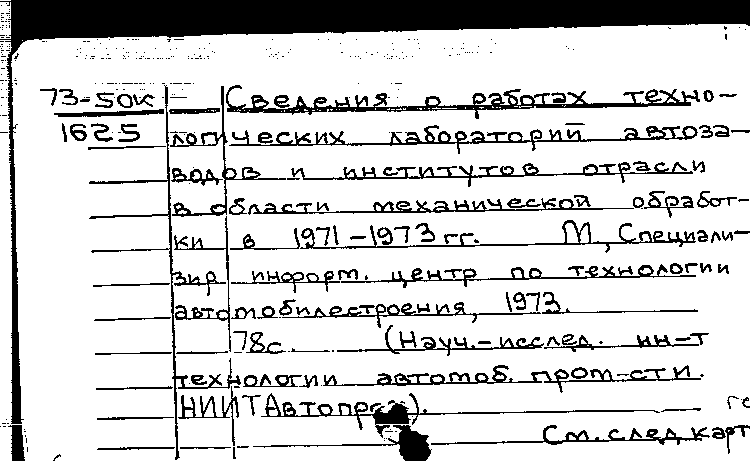 73-50к Сведения о работах техно-
1625 логических лабораторий автоза-
водов и институтов отрасли
в области механической обработ-
ки в 1971-1973 гг. М, Специали-
зир информ. центр по технологии
автомобилестроения, 1973.
78с. (Науч.-исслед. ин-т
технологии автотоб. пром-сти.
НИИТАвтопром).
См. след карт